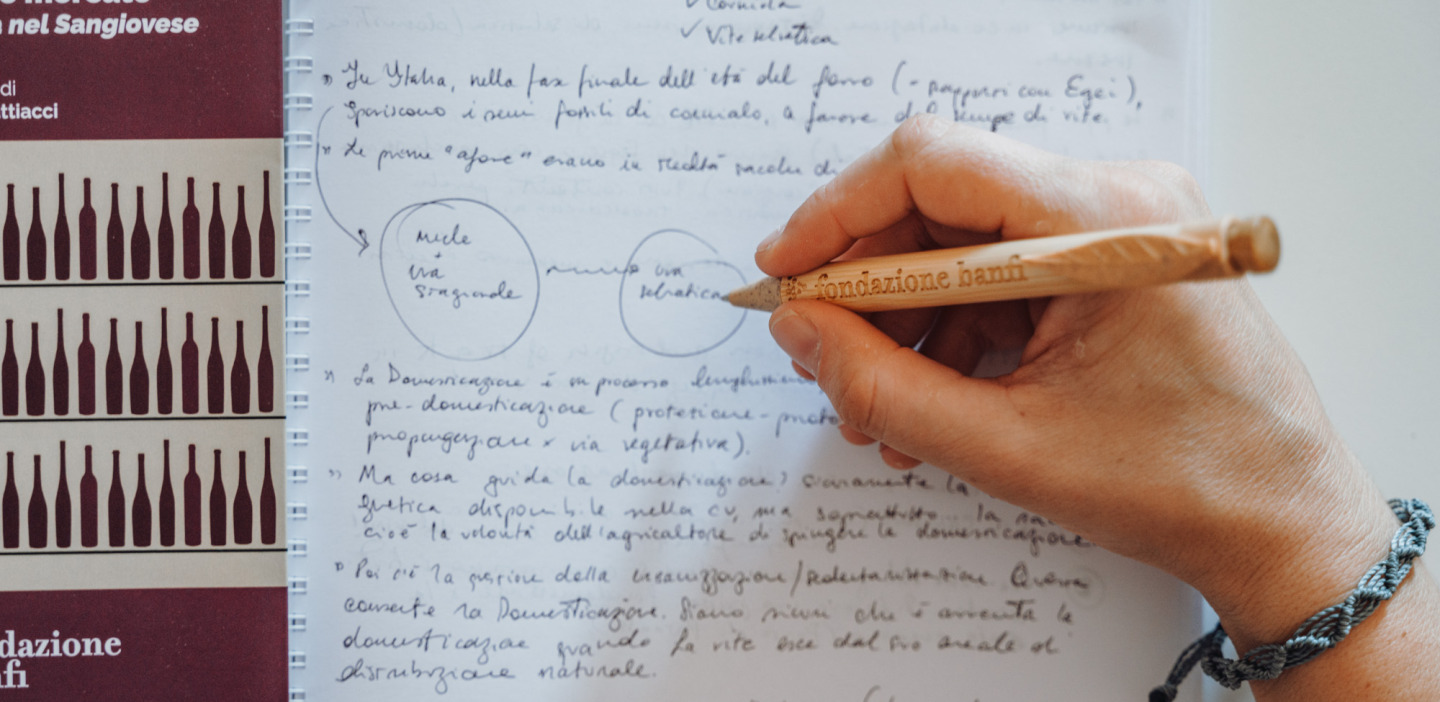 nel Sangiovese
di
ttiacci
dazione
nfi
✓ Corniola
✓ Vite selvatica
In Italia, nella fase finale dell'età del ferro (- rapporti con Egei),
spariscono i semi fossili di corniolo, a favore del seme di vite.
Le prime "afore" erano in realtà
miele
+
uva
stagionale
uva
selvatica
fondazione banfi
La Domesticazione è un processo
pre-domesticazione (protezione -
propagazione x via vegetativa).
Ma cosa guida la domesticazione? sicuramente la
genetica disponibile nella cv, ma soprattutto la
cioè la volontà dell'agricoltore di spingere le domesticazione
Poi c'è la gestione della
consente la Domesticazione. Siamo sicuri che è avvenuta la
domesticazione quando la vite esce dal suo areale di
distribuzione naturale.